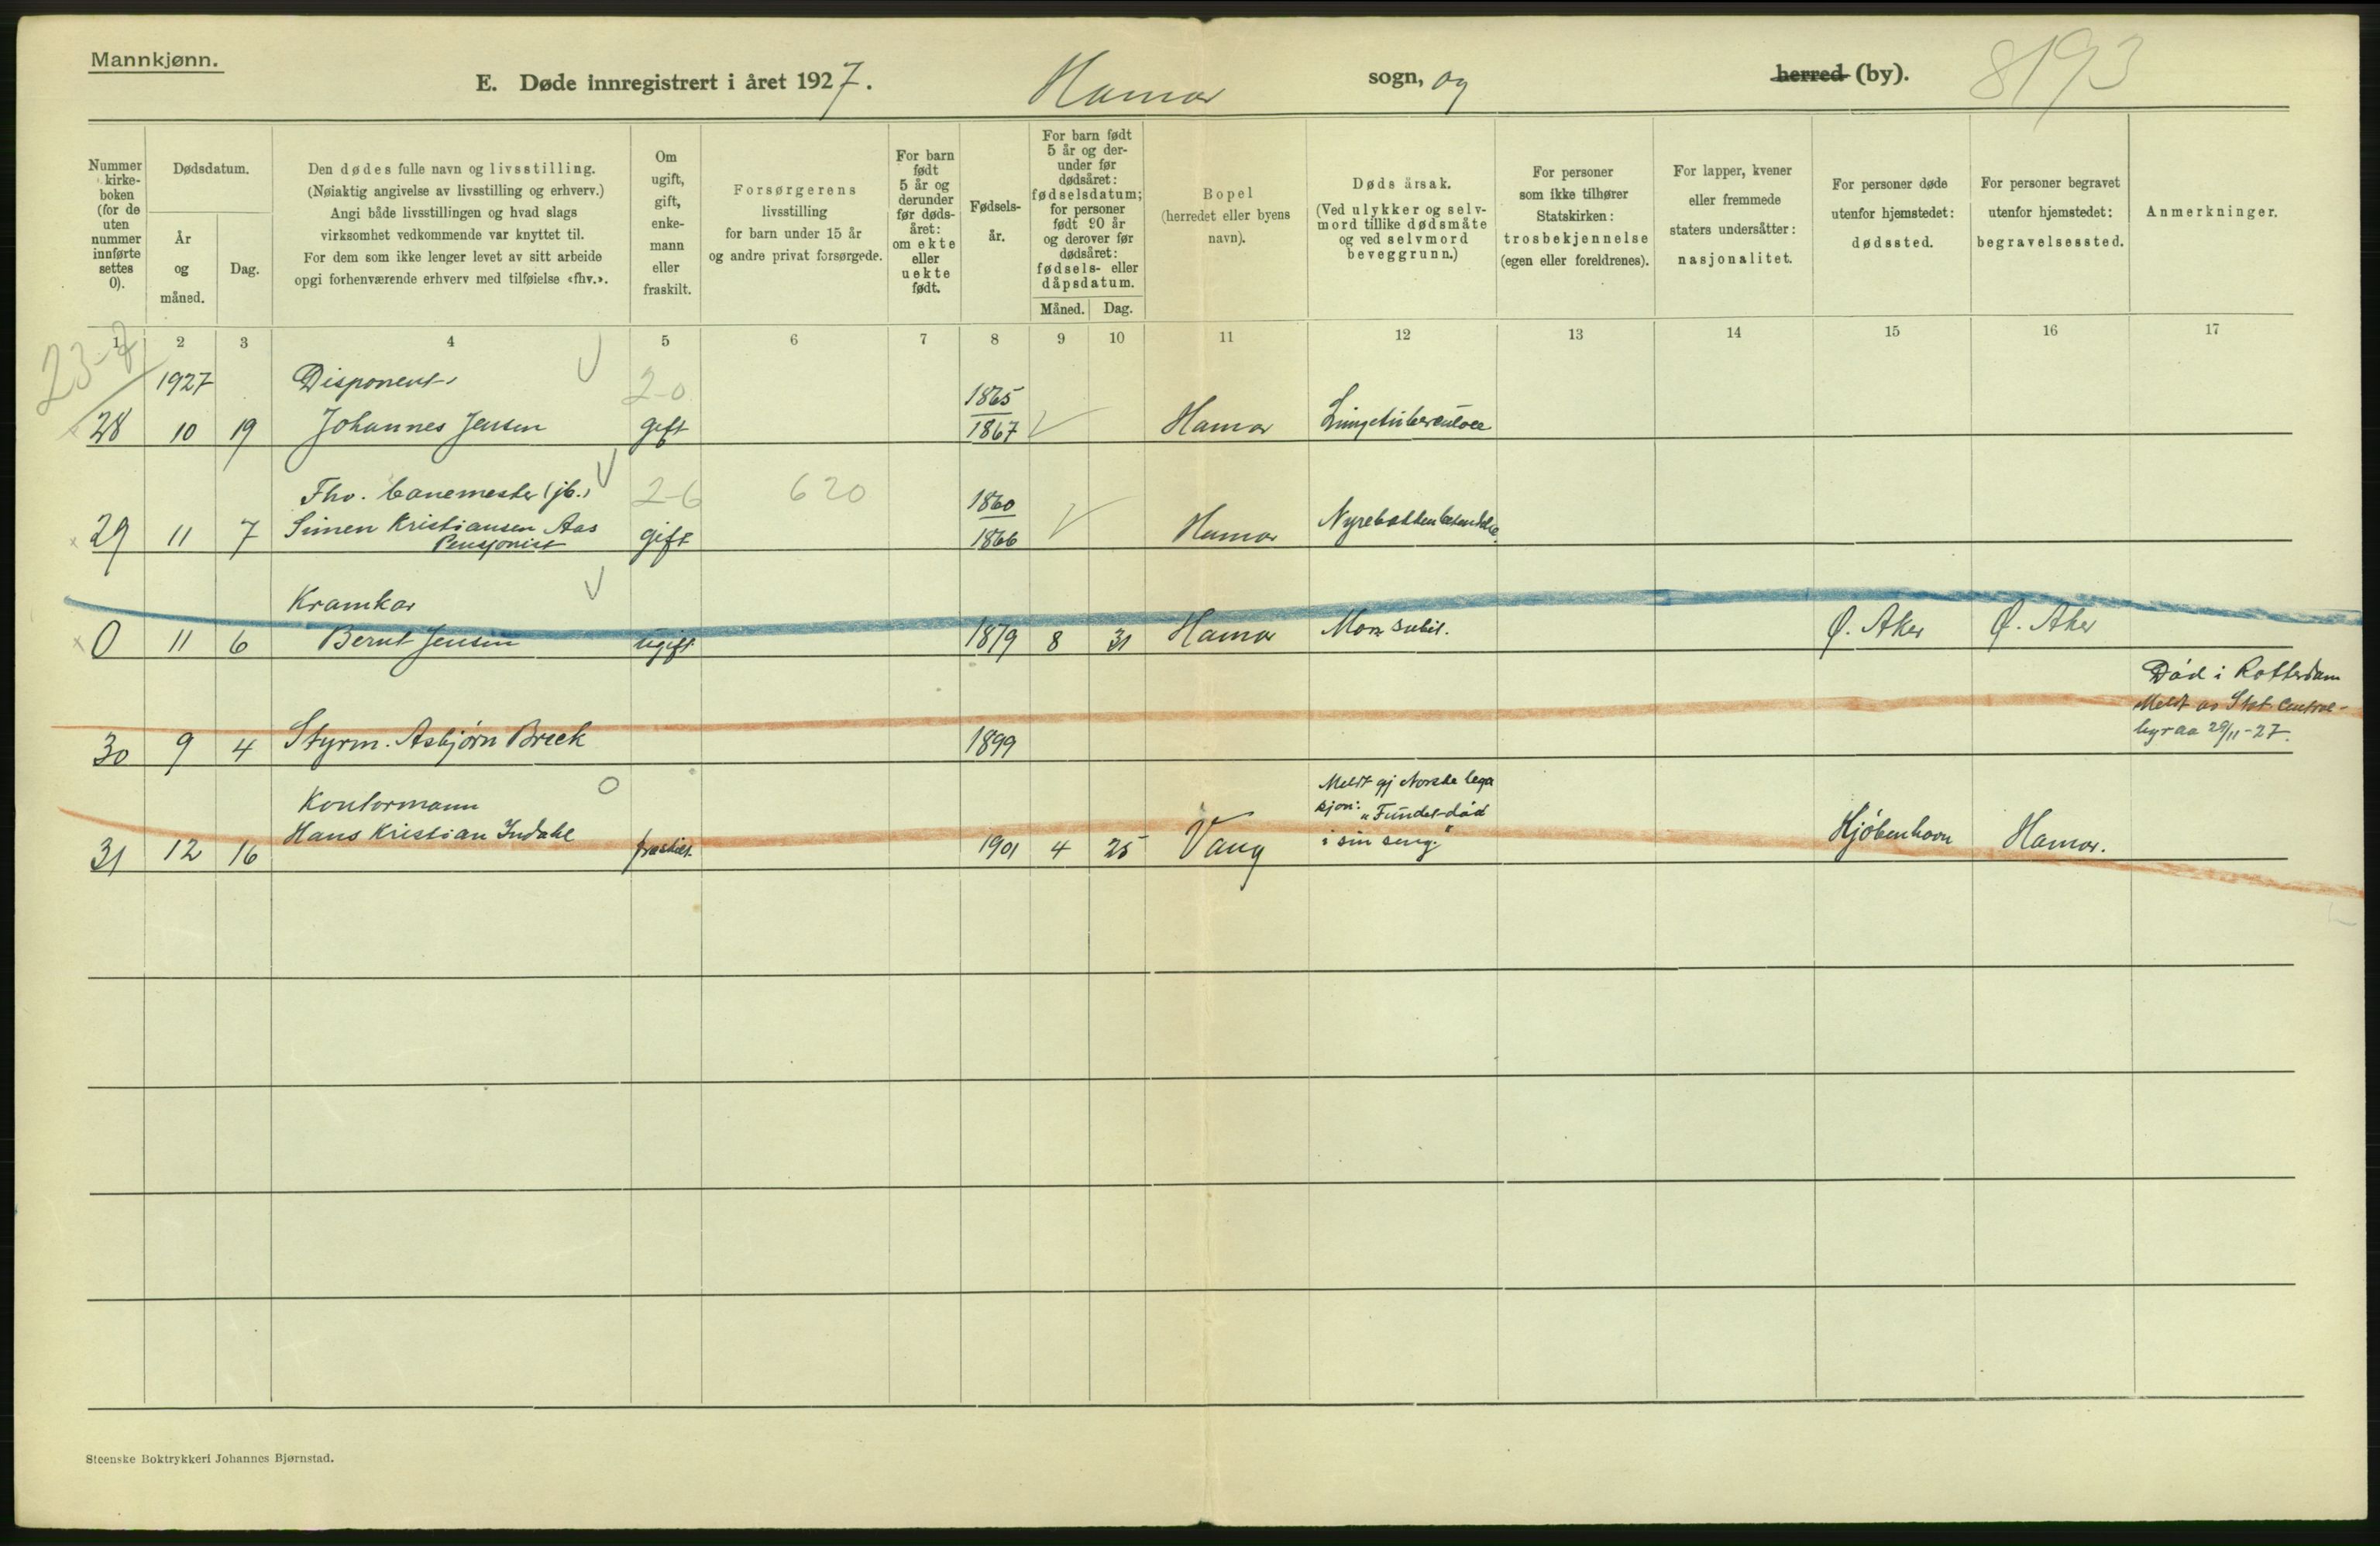 Mannkjønn.
E. Døde innregistrert i året 1927. Hamar sogn, og herred (by). 8193
Nummer
kirke-
boken
(for de
uten
nummer
innførte
settes
0).
Dødsdatum.
År
og
måned.
Dag.
Den dødes fulle navn og livsstilling.
(Nøiaktig angivelse av livsstilling og erhverv.)
Angi både livsstillingen og hvad slags
virksomhet vedkommende var knyttet til.
For dem som ikke lenger levet av sitt arbeide
opgi forhenværende erhverv med tilføielse «fhv.».
Om
ugift,
gift,
enke-
mann
eller
fraskilt.
Forsørgerens
livsstilling
for barn under 15 år
og andre privat forsørgede.
For barn
født
5 år og
derunder
før døds-
året:
om ekte
eller
uekte
født.
Fødsels-
år.
For barn født
5 år og der-
under før
dødsåret:
fødselsdatum;
for personer
født 90 år
og derover før
dødsåret:
fødsels- eller
dåpsdatum.
Måned. Dag.
Bopel
(herredet eller byens
navn).
Døds årsak.
(Ved ulykker og selv-
mord tillike dødsmåte
og ved selvmord
beveggrunn.)
For personer
som ikke tilhører
Statskirken:
trosbekjennelse
(egen eller foreldrenes).
For lapper, kvener
eller fremmede
staters undersåtter:
nasjonalitet.
For personer døde
utenfor hjemstedet:
dødssted.
For personer begravet
utenfor hjemstedet:
begravelsessted.
Anmerkninger.
1 2 3 4 5 6 7 8 9 10 11 12 13 14 15 16 17
23-7
1927 Disponent 2-0 1865
28 10 19 Johannes Jensen gift 1867 Hamar Lungetuberculose
Fhv. banemester (jb.) 2-6 620 1860
29 11 7 Simen Kristiansen Aas gift 1866 Hamar Nyrebekkenbetendelse
Pensjonist
Kramkar
0 11 6 Bernt Jensen ugift 1879 8 31 Hamar Mors subit. Ø. Aker Ø. Aker
Død i Rotterdam
Meldt av Stat. Central-
byraa 29/11-27.
30 9 4 Styrm. Asbjørn Breek 1899
Kontormann
Meldt gj Norske lega
sjon: "Fundet død
i sin seng."
31 12 16 Hans Kristian Indahl fraskilt. 1901 4 25 Vang Kjøbenhavn Hamar.
Steenske Boktrykkeri Johannes Bjørnstad.